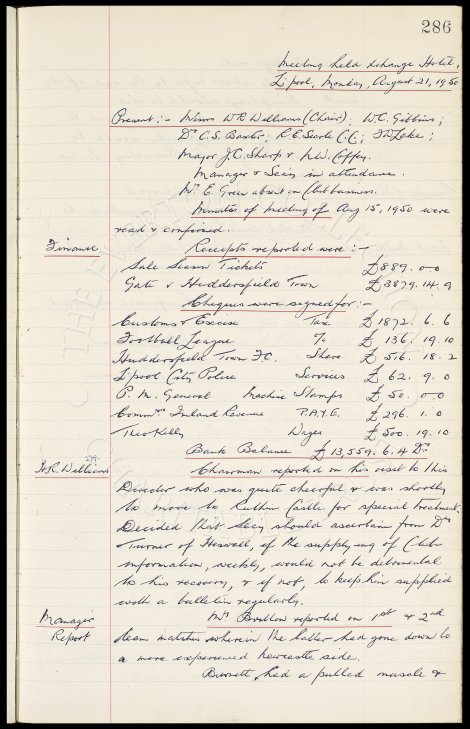 286
Meeting held Xchange Hotel,
L'pool, Monday, August 21, 1950
Present :- Messrs W.R. Williams (Chair); W.C. Gibbins;
Dr C.S. Baxter; R.E. Searle C.C.;
Major J.C. Sharp & N.W. Coffey.
Manager & Secy in attendance.
Mr E. Green absent on Club business.
Minutes of meeting of Aug 15, 1950 were
read & confirmed.
Finance
Receipts reported were :-
Sale Season Tickets £889. 0-0
Gate v Huddersfield Town £3879. 14. 9
Cheques were signed for :-
Customs & Excise Tax £1872. 6. 6
Football League % £ 136. 19. 10
Huddersfield Town F.C. Share £ 516. 18. 2
L'pool City Police Services £ 62. 9. 0
P. M. General Machine Stamps £ 50. 0-0
Commrs Inland Revenue P.A.Y.E. £296. 1. 0
Theo Kelly Wages £500. 19. 10
Bank Balance £13,559. 6. 4 Dr
Williams
Chairman reported on his visit to this
Director who was quite cheerful & was shortly
to move to Ruthin Castle for special treatment.
Decided that Secy should ascertain from Dr
Turner of Heswall, if the supplying of Club
information, weekly, would not be detrimental
to his recovery, & if not, to keep him supplied
with a bulletin regularly.
Manager's
Report
Mr Britton reported on 1st & 2nd
team matches wherein the latter had gone down to
a more experienced Newcastle side.
Burnett had a pulled muscle &